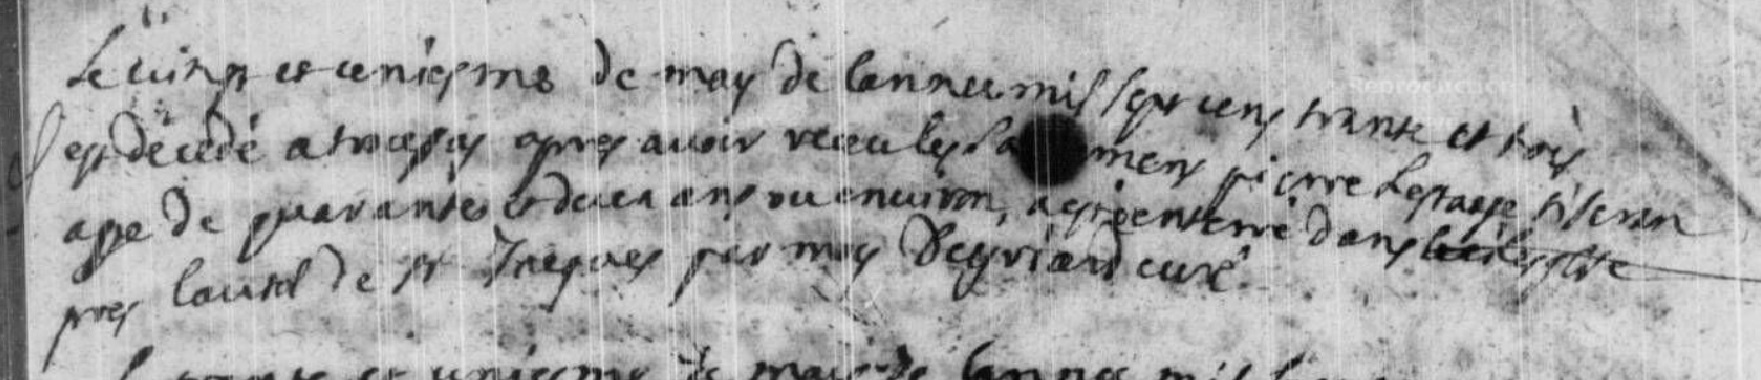 Le vingt et uniesme de may de lannee mil sept cens trante et trois
est décédé apres avoir receu les sa mens pierre Lestage tisseran
age de quarante et deux ans ou environ, a esté enterré dans
pres lautel de st Jacques par moy curé
trante et uniesme de may de lannee mil